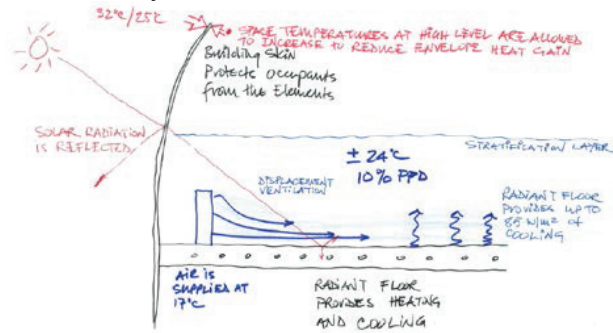 32°C/25°C
SPACE TEMPERATURES AT HIGH LEVEL ARE ALLOWED
TO INCREASE TO REDUCE ENVELOPE HEAT GAIN
Building Skin
Protects occupants
from the Elements
SOLAR RADIATION
IS REFLECTED
STRATIFICATION LAYER
± 24°C
10% PPD
DISPLACEMENT
VENTILATION
RADIANT FLOOR
PROVIDES UP TO
85 W/m² OF
COOLING
AIR IS
SUPPLIED AT
17°C
RADIANT FLOOR
PROVIDES HEATING
AND COOLING